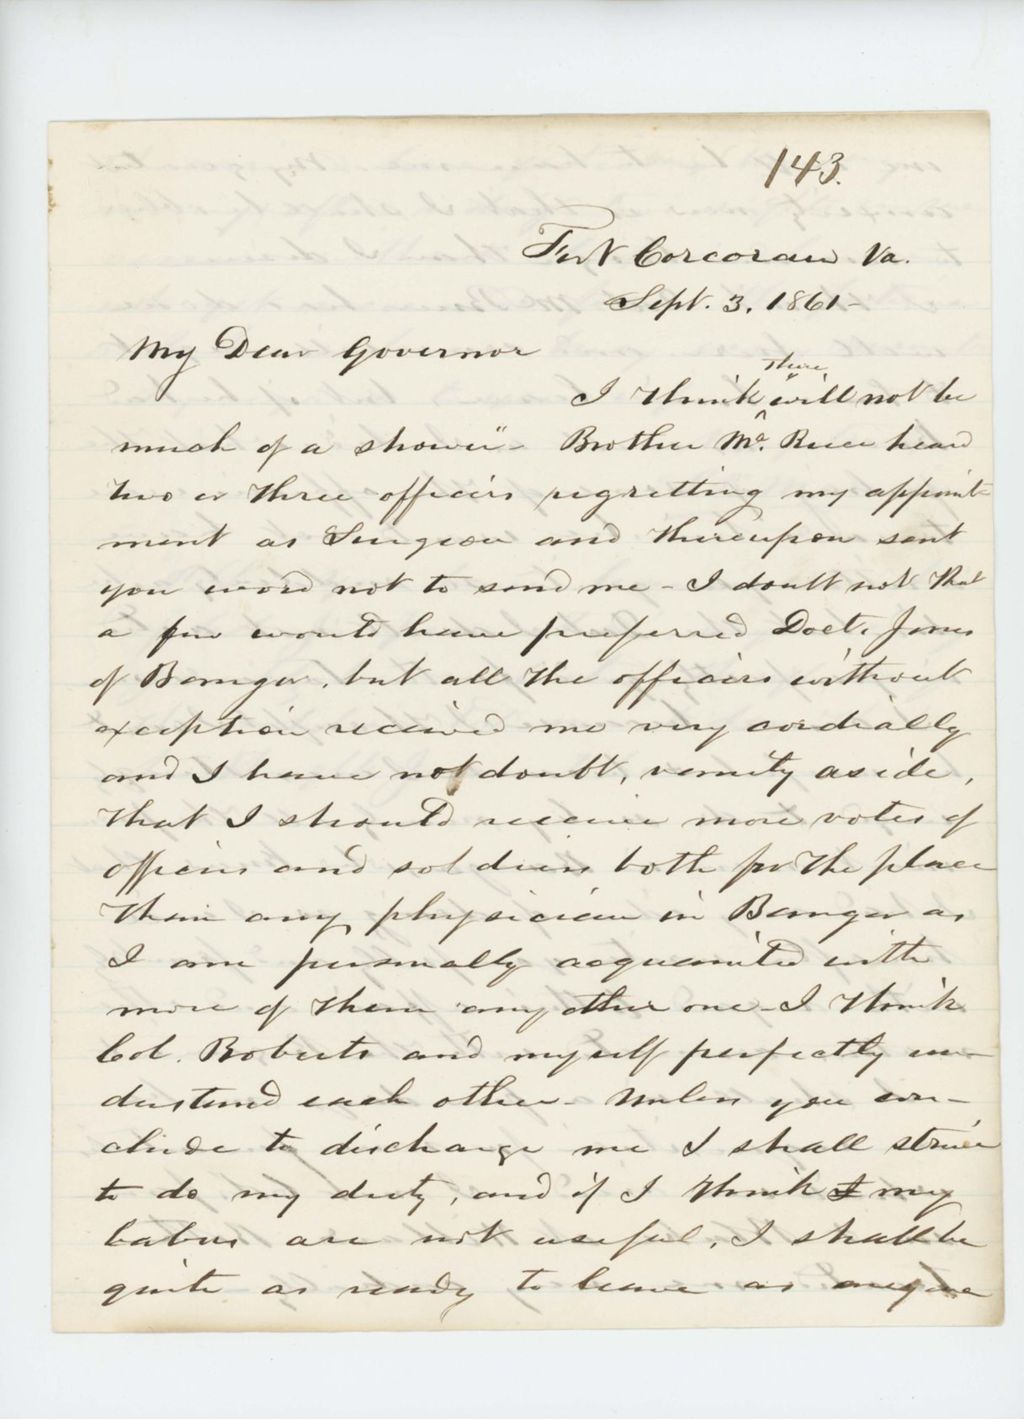 143.
Fort Corcoran Va.
Sept. 3. 1861-
My Dear Governor
there
I think ^ will not be
much of a shower" - Brother Mc. Ruer heard
two or three officers regretting my appoint-
ment as Surgeon and thereupon sent
you word not to send me - I doubt not that
a few would have preferred Doct. Jones
of Bangor, but all the officers without
exception received me very cordially
and I have not doubt, vanity aside,
that I should receive more votes of
officers and soldiers both for the place
than any physician in Bangor as
I am personally acquainted with
more of them any other one - I think
Col. Roberts and myself perfectly un-
derstand each other - Unless you con-
clude to discharge me I shall strive
to do my duty, and if I think I my
labors are not useful, I shall be
quite as ready to leave as anyone